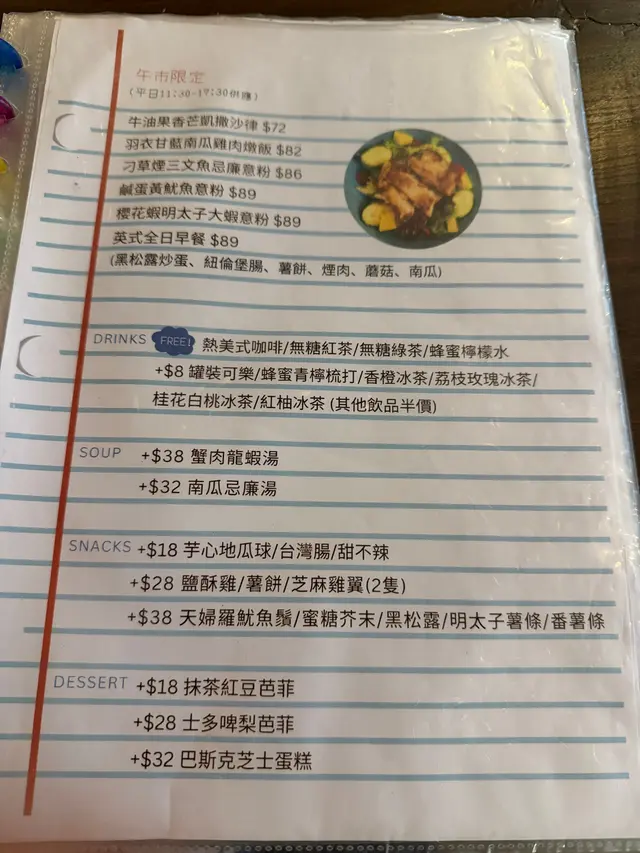 午市限定
(平日11:30-17:30供應)
牛油果香芒凱撒沙律 $72
羽衣甘藍南瓜雞肉燉飯 $82
刁草煙三文魚忌廉意粉 $86
鹹蛋黃魷魚意粉 $89
櫻花蝦明太子大蝦意粉 $89
英式全日早餐 $89
(黑松露炒蛋、紐倫堡腸、薯餅、煙肉、蘑菇、南瓜)
DRINKS FREE! 熱美式咖啡/無糖紅茶/無糖綠茶/蜂蜜檸檬水
+$8 罐裝可樂/蜂蜜青檸梳打/香橙冰茶/荔枝玫瑰冰茶/
桂花白桃冰茶/紅柚冰茶 (其他飲品半價)
SOUP +$38 蟹肉龍蝦湯
+$32 南瓜忌廉湯
SNACKS +$18 芋心地瓜球/台灣腸/甜不辣
+$28 鹽酥雞/薯餅/芝麻雞翼(2隻)
+$38 天婦羅魷魚鬚/蜜糖芥末/黑松露/明太子薯條/番薯條
DESSERT +$18 抹茶紅豆芭菲
+$28 士多啤梨芭菲
+$32 巴斯克芝士蛋糕